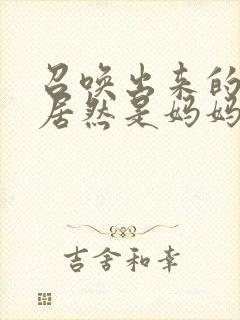 召唤出来的
居然是妈妈
吉舍和幸